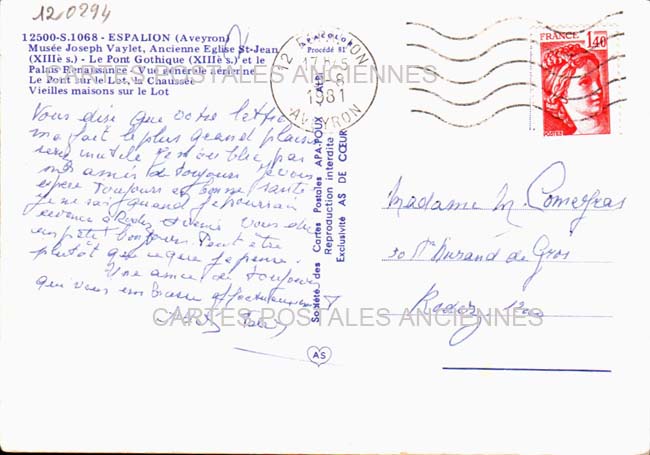 12.0294
12500-S.1068 - ESPALION (Aveyron)
Musée Joseph Vaylet, Ancienne Eglise St-Jean
(XIIIè s.) - Le Pont Gothique (XIIIè s.) et le
Palais Renaissance - Vue générale aérienne
Le Pont sur le Lot, la Chaussée
Vieilles maisons sur le Lot
Vous dire que votre lettre
m'a fait le plus grand plaisir
serait inutile
mes amis de toujours Je vous
espère toujours en bonne santé
je ne sais quand je pourrais
revenir à Rodez et venir vous dire
un petit bonjour. Peut être
plutôt que ce que je pense.
Une amie de toujours
qui vous embrasse affectueusement
APACOLOR
Procédé 81
Société des Cartes Postales APA-POUX - ALBI
Reproduction interdite
Exclusivité AS DE CŒUR
AS
12 ESPALION
1981
AVEYRON
FRANCE
1,40
Madame M. Comergras
30 Durand de Gros
Rodez 12000
CARTES POSTALES ANCIENNES
CARTES POSTALES ANCIENNES